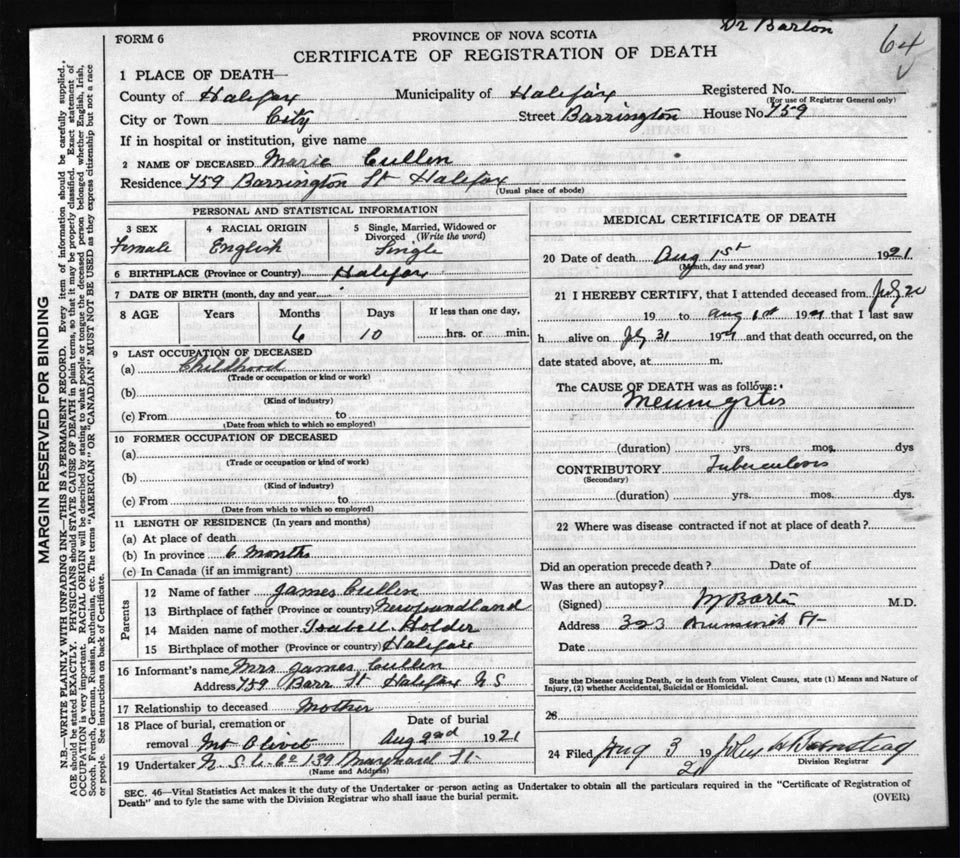 Dr Barton
64
FORM 6
PROVINCE OF NOVA SCOTIA
CERTIFICATE OF REGISTRATION OF DEATH
1 PLACE OF DEATH—
County of Halifax Municipality of Halifax Registered No.
(For use of Registrar General only)
City or Town City Street Barrington House No 759
If in hospital or institution, give name
2 NAME OF DECEASED Marie Cullen
Residence 759 Barrington St Halifax
(Usual place of abode)
PERSONAL AND STATISTICAL INFORMATION
3 SEX 4 RACIAL ORIGIN 5 Single, Married, Widowed or Divorced (Write the word)
Female English Single
6 BIRTHPLACE (Province or Country) Halifax
7 DATE OF BIRTH (month, day and year)
8 AGE Years Months Days If less than one day,
6 10 hrs. or min.
9 LAST OCCUPATION OF DECEASED
(a) Childhood
(Trade or occupation or kind of work)
(b)
(Kind of industry)
(c) From to
(Date from which to which so employed)
10 FORMER OCCUPATION OF DECEASED
(a)
(Trade or occupation or kind of work)
(b)
(Kind of industry)
(c) From to
(Date from which to which so employed)
11 LENGTH OF RESIDENCE (In years and months)
(a) At place of death
(b) In province 6 months
(c) In Canada (if an immigrant)
Parents
12 Name of father James Cullen
13 Birthplace of father (Province or country) Newfoundland
14 Maiden name of mother Isabell Holder
15 Birthplace of mother (Province or country) Halifax
16 Informant's name Mrs James Cullen
Address 759 Barr St Halifax N S
17 Relationship to deceased Mother
18 Place of burial, cremation or Date of burial
removal Mt Olivet Aug 2nd 1921
19 Undertaker N. S. U. Co 139 Maynard St.
(Name and Address)
MEDICAL CERTIFICATE OF DEATH
20 Date of death Aug 1st 1921
(Month, day and year)
21 I HEREBY CERTIFY, that I attended deceased from July 20
19 to Aug 1st 1921 that I last saw
h alive on Jly 31 1921 and that death occurred, on the
date stated above, at m.
The CAUSE OF DEATH was as follows:
Meningitis
(duration) yrs. mos. dys
CONTRIBUTORY Tuberculosis
(Secondary)
(duration) yrs. mos. dys.
22 Where was disease contracted if not at place of death?
Did an operation precede death? Date of
Was there an autopsy?
(Signed) Barton M.D.
Address 323 Brunswick St
Date
State the Disease causing Death, or in death from Violent Causes, state (1) Means and Nature of
Injury, (2) whether Accidental, Suicidal or Homicidal.
23
24 Filed Aug 3 19 21
Division Registrar
SEC. 46—Vital Statistics Act makes it the duty of the Undertaker or person acting as Undertaker to obtain all the particulars required in the "Certificate of Registration of
Death" and to fyle the same with the Division Registrar who shall issue the burial permit.
(OVER)
MARGIN RESERVED FOR BINDING
N.B.—WRITE PLAINLY WITH UNFADING INK—THIS IS A PERMANENT RECORD. Every item of information should be carefully supplied.
AGE should be stated EXACTLY. PHYSICIANS should STATE CAUSE OF DEATH in plain terms, so that it may be properly classified. Exact statement of
OCCUPATION is very important. RACIAL ORIGIN will be described by stating to what people or tongue the deceased person belonged whether English, Irish,
Scotch, French, German, Russian, Ruthenian, etc. The terms "AMERICAN" OR "CANADIAN" MUST NOT BE USED as they express citizenship but not a race
or people. See instructions on back of Certificate.